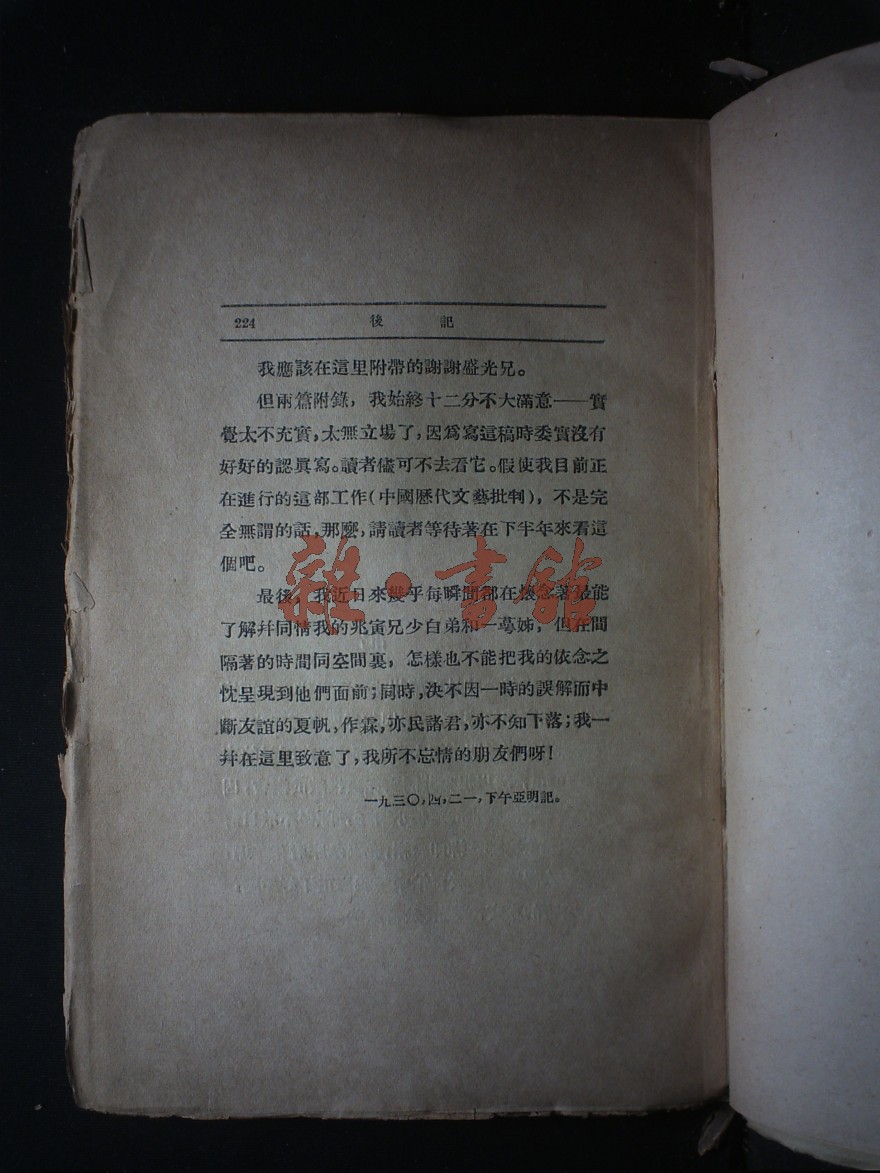 224 後記
我應該在這里附帶的謝謝盛光兄。
但兩篇附錄，我始終十二分不大滿意——實
覺太不充實，太無立場了，因爲寫這稿時委實沒有
好好的認眞寫。讀者儘可不去看它。假使我目前正
在進行的這部工作（中國歷代文藝批判），不是完
全無謂的話，那麼，請讀者等待著在下半年來看這
個吧。
最後，我近日來幾乎每瞬間都在懷念著最能
了解幷同情我的兆寅兄少白弟和一萼姊，但在間
隔著的時間同空間裏，怎樣也不能把我的依念之
忱呈現到他們面前；同時，決不因一時的誤解而中
斷友誼的夏帆，作霖，亦民諸君，亦不知下落；我一
幷在這里致意了，我所不忘情的朋友們呀！
一九三〇，四，二一，下午亞明記。
雜·書館